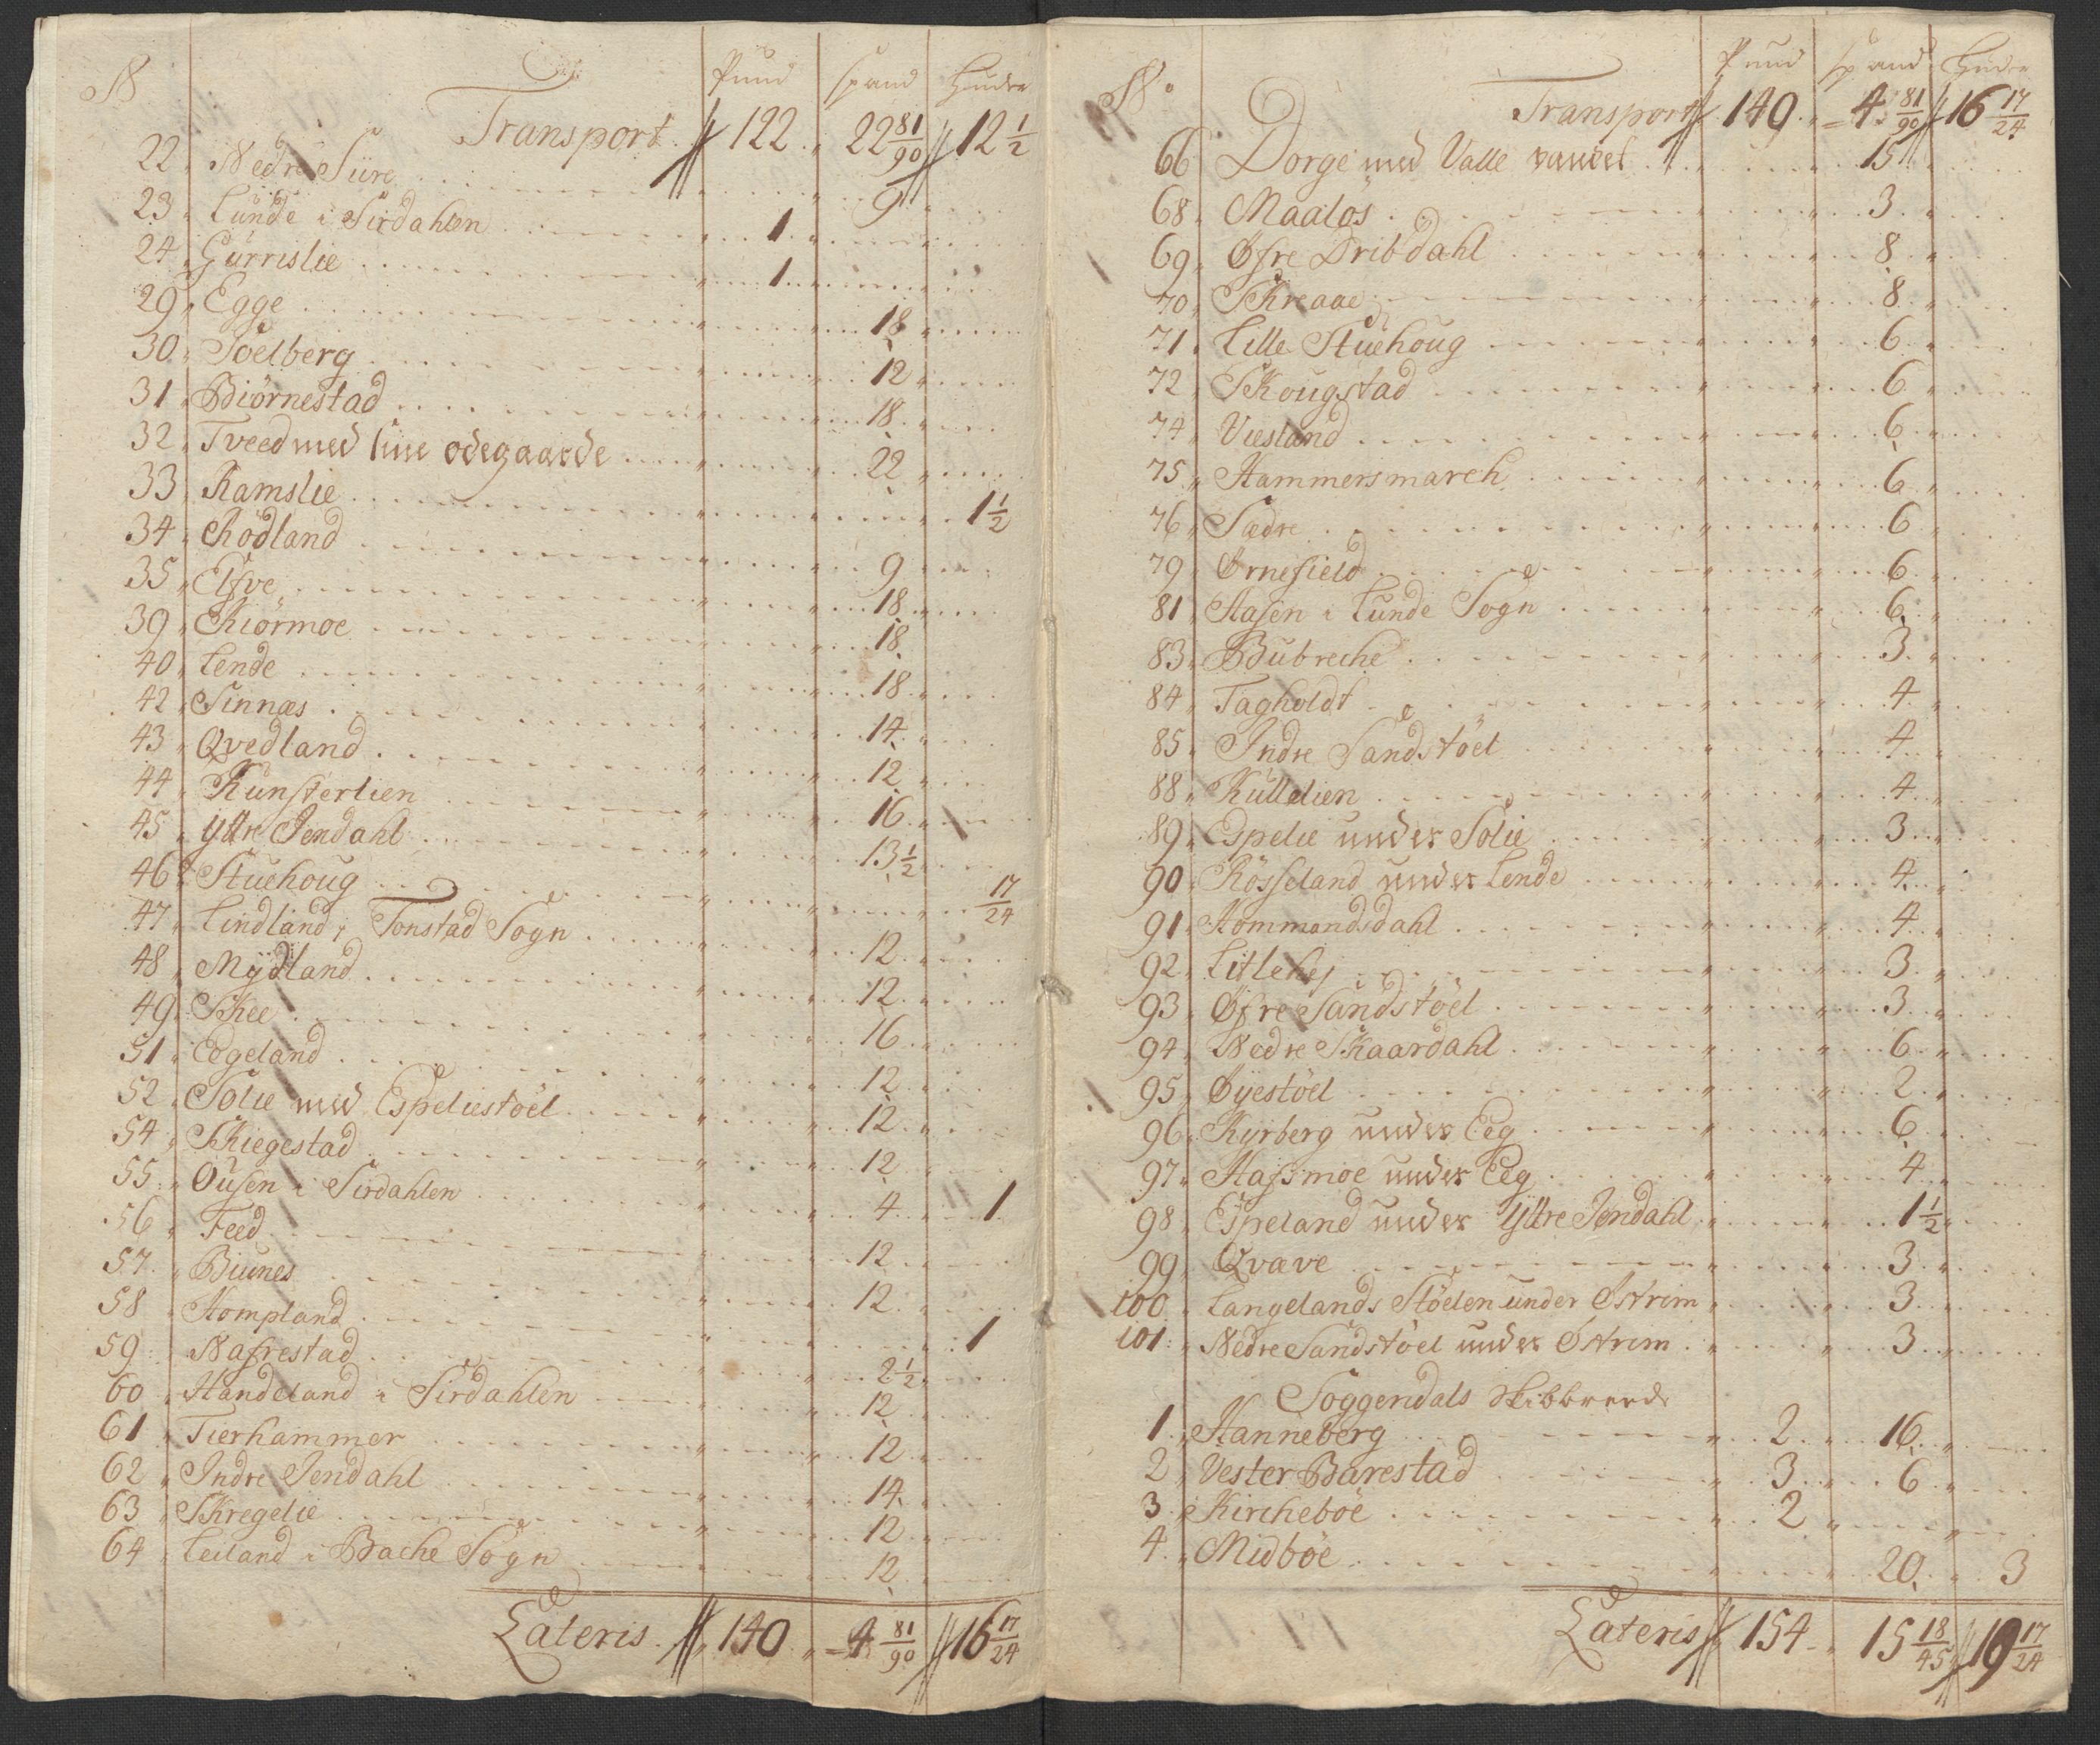 N Pund Spand Huder
Transport. 122. 22 81/90 12 1/2
22 Nedre Siire 9
23 Lunde i Sirdahlen 1
24 Gurrislie 1
29 Egge 18
30 Soelberg 12
31 Biörnestad 18
32 Tveed med sine ödegaarde 22
33 Ramslie 1 1/2
34 Rödland 9
35 Efve 18
39 Kiörmoe 18
40 Lende 18
42 Sinnæs 14
43 Qvedland 12
44 Kunsterlien 16
45 Yttre Jendahl 13 1/2
46 Stuehoug 17/24
47 Lindland i Tonstad Sogn 12
48 Mydland 12
49 Skee 16
51 Egeland 12
52 Solie med Espeliestöel 12
54 Skiegestad 12
55 Ousen i Sirdahlen 4 1
56 Feed 12
57 Biunes 12
58 Hompland 1
59 Nafrestad 2 1/2
60 Handeland i Sirdahlen 12
61 Tierhammer 12
62 Indre Jendahl 14
63 Skregelie 12
64 Leiland i Bache Sogn 12
Lateris. 140 4 81/90 16 17/24
N° Pund Spand Huder
Transport 140. 4 81/90 16 17/24
66 Dorge med Valle 15
68 Maalös 3
69 Öfre Dribdahl 8
70 Skreaae 8
71 Lille Stuehoug 6
72 Skougstad 6
74 Viesland 6
75 Hammersmarch 6
76 Sædre 6
79 Örnefield 6
81 Hasen i Lunde Sogn 6
83 Bubreche 3
84 Tagholdt 4
85 Indre Sandstöel 4
88 Kulledien 4
89 Espelie under Solie 3
90 Rösseland under Lende 4
91 Hommandsdahl 4
92 Litlehej 3
93 Öfre Sandstöel 3
94 Nedre Skaardahl 6
95 Öyestöel 2
96 Kyrberg under Eeg 6
97 Hafsmoe under Eeg 4
98 Espeland under Yttre Jendahl 1 1/2
99 Qvæve 3
100 Langelands Stöelen under Östrem 3
101 Nedre Sandstöel under Östrem 3
Soggendals Skibbreede
1 Hanneberg 2 16
2 Vester Barestad 3 6
3 Kircheböe 2
4 Midböe 20 3
Lateris 154 15 18/45 19 17/24